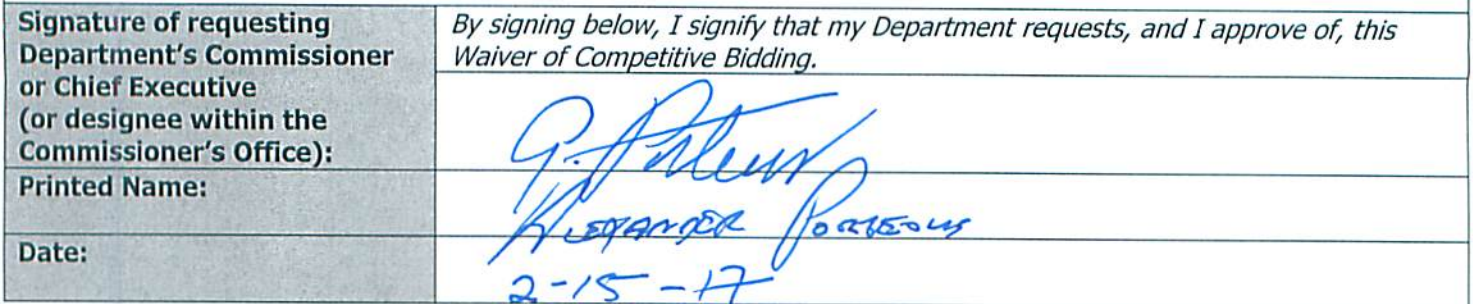 Signature of requesting
Department's Commissioner
or Chief Executive
(or designee within the
Commissioner's Office):
By signing below, I signify that my Department requests, and I approve of, this
Waiver of Competitive Bidding.
Printed Name:
ALEXANDER PORTEOUS
Date:
2-15-17